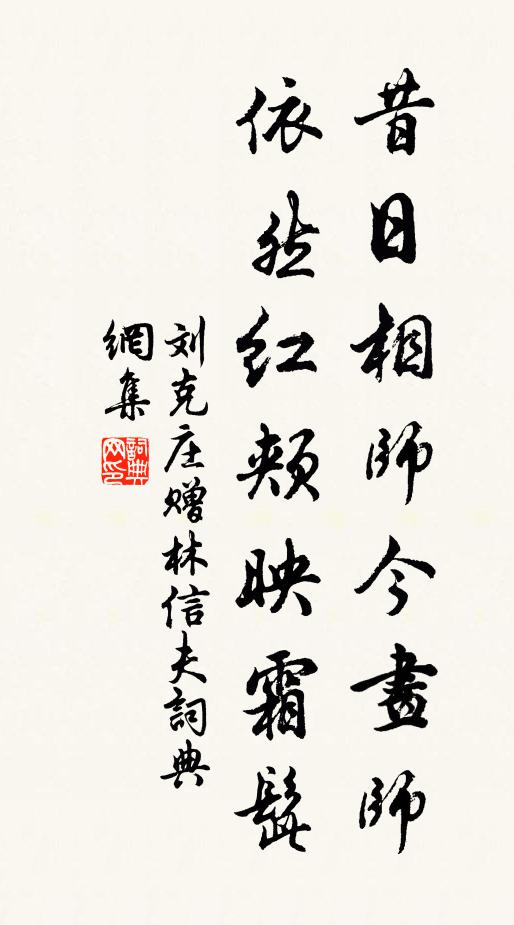 昔日相師今畫師
依然紅頰映霜髭
刘克庄赠林信夫詞典
網集
詞典網印